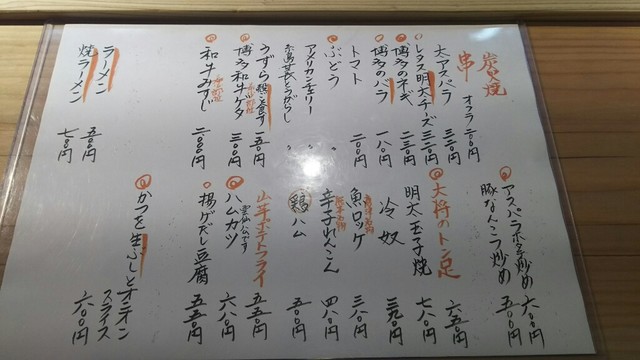 炭火焼
串
オクラ 二〇〇円
大アスパラ 三五〇円
レタス明太チーズ 三二〇円
博多のネギ 二三〇円
博多のバラ 一八〇円
トマト 二〇〇円
ぶどう 〃
アメリカンチェリー 〃
糸島甘長とうがらし 〃
うずら殻ごと食す 一五〇円
博多和牛ゲタ 三〇〇円
和牛みすじ 二〇〇円
ラーメン 五〇〇円
焼ラーメン 七〇〇円
アスパラ玉子炒め 六〇〇円
豚なんこつ炒め 五〇〇円
大将のトン足 六五〇円
明太玉子焼 七八〇円
冷奴 三九〇円
魚ロッケ 三八〇円
辛子れんこん 四八〇円
鶏ハム 五〇〇円
山芋ポテトフライ 五五〇円
ハムカツ 六八〇円
揚げだし豆腐 五五〇円
かつを生ぶしとオニオンスライス 六〇〇円